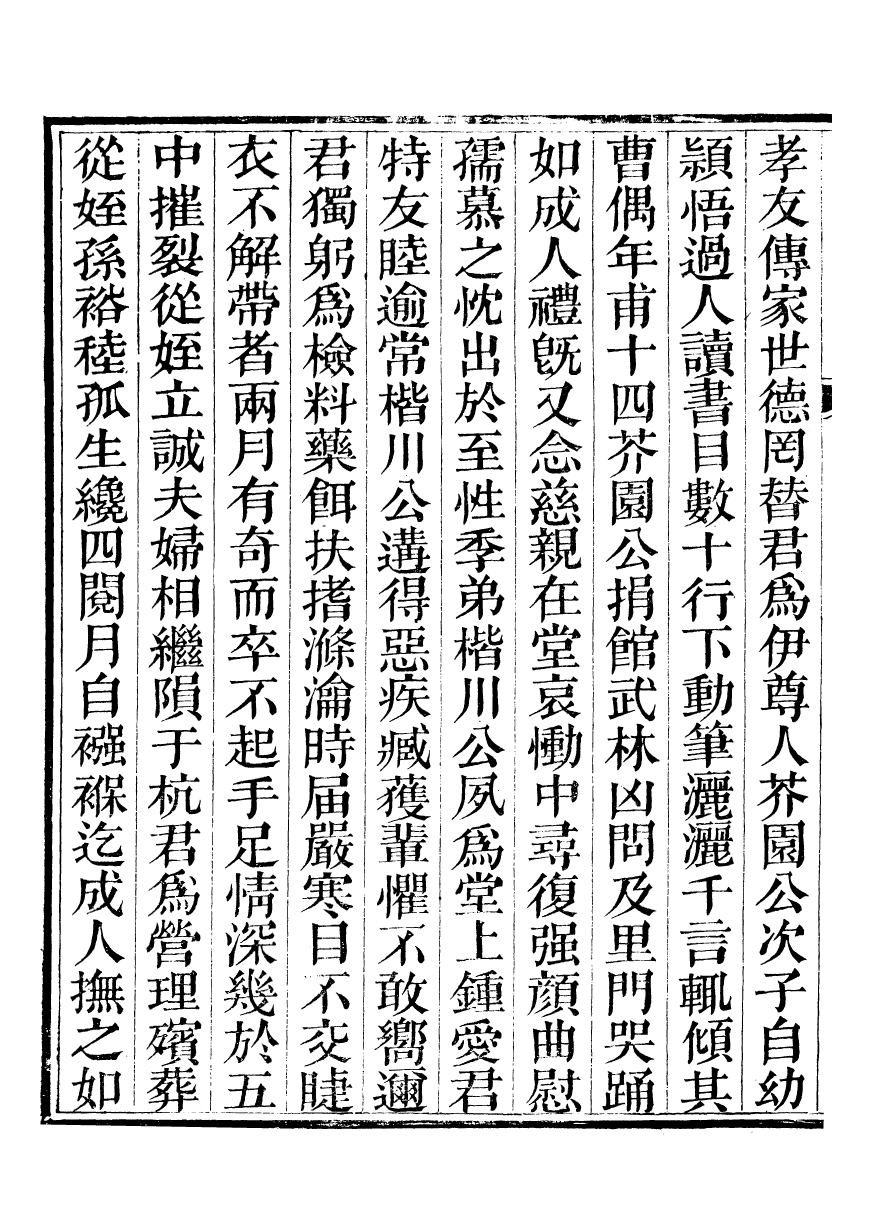 孝友傳家世德罔替君爲伊尊人芥園公次子自幼
潁悟過人讀書目數十行下動筆灑灑千言輒傾其
曹偶年甫十四芥園公捐館武林凶問及里門哭踊
如成人禮旣又念慈親在堂哀慟中尋復强顔曲慰
孺慕之忱出於至性季弟楷川公夙爲堂上鍾愛君
特友睦逾常楷川公遘得惡疾臧獲輩懼不敢嚮邇
君獨躬爲檢料藥餌扶掖滌瀹時届嚴寒目不交睫
衣不解帶者兩月有奇而卒不起手足情深幾於五
中摧裂從姪立誠夫婦相繼隕于杭君爲營理殯葬
從姪孫裕稑孤生纔四閱月自襁褓迄成人撫之如